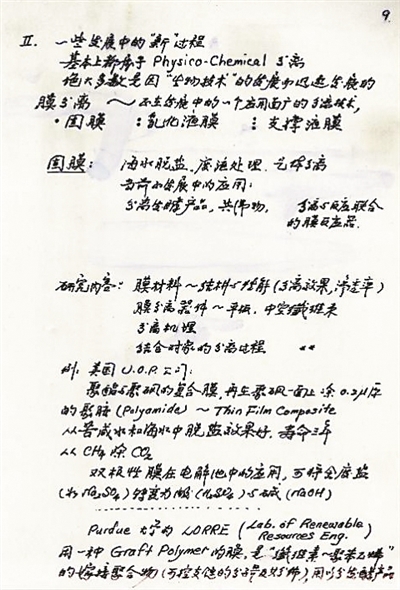 9.
II. 一些发展中的"新"过程
基本上都属于 Physico-Chemical 分离
绝大多数是因"生物技术"的发展而迅速发展的
膜分离 ～ 正在发展中的一个应用面广的分离技术,
·固膜 :乳化液膜 :支撑液膜
固膜: 海水脱盐、废液处理、气体分离
当前发展中的应用:
分离生物产品, 共沸物, 分离与反应联合
的膜反应器.
研究内容: 膜材料～结构与性能(分离效果,渗透率)
膜分离器件～平板, 中空纤维束
分离机理
结合对象的分离过程
例: 美国 U.O.P. 公司:
聚酯与聚砜的复合膜, 再在聚砜一面上涂 0.2μ厚
的聚胺 (Polyamide) ~ Thin Film Composite
从苦咸水和海水中脱盐效果好, 寿命三年
从 CH4 除 CO2
双极性膜在电解池中的应用, 可将含废盐
(如 Na2SO4) 转变为酸 (H2SO4) 与碱 (NaOH)
Purdue 大学的 LORRE (Lab. of Renewable
Resources Eng.)
用一种 Graft Polymer 的膜, 是"纤维素～聚苯乙烯"
的嫁接聚合物(可控支链的分子及分布)用以分离